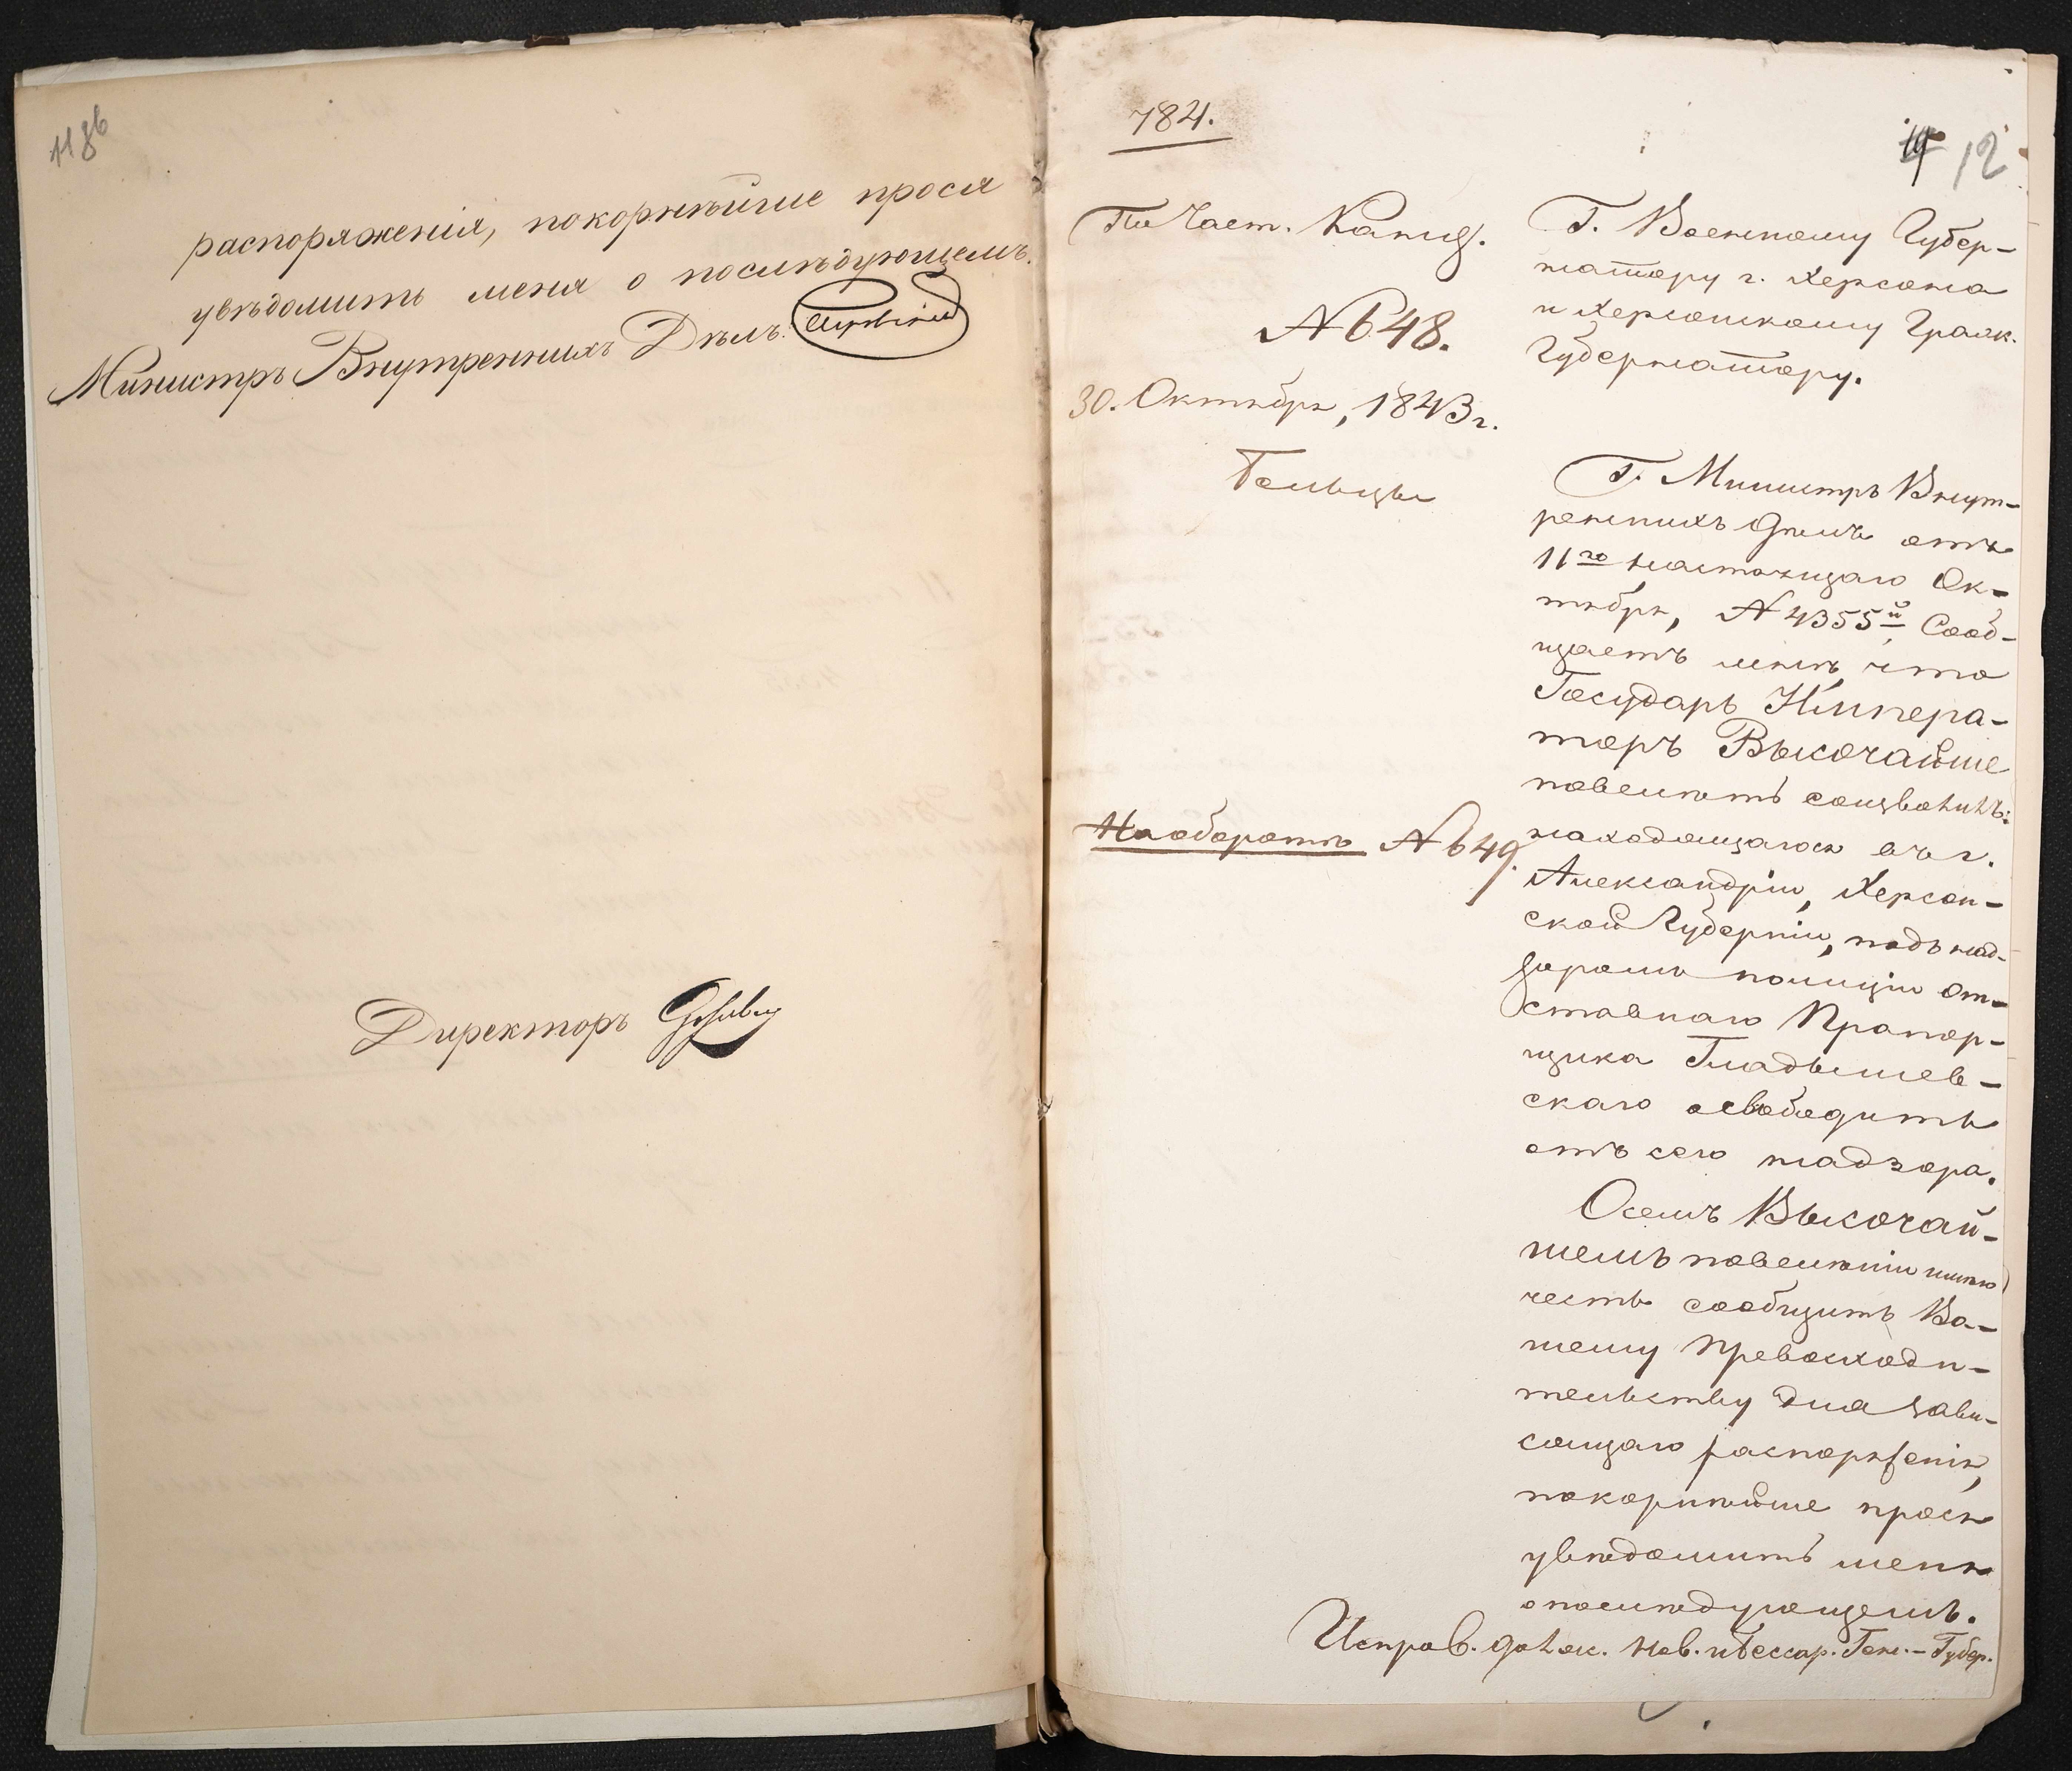 11 об
распоряженія, покорнѣйше прося
увѣдомить меня о послѣдующемъ.
Министръ Внутреннихъ Дѣлъ
Директоръ
784.
12
По Част. Канц.
№ 648.
30. Октября, 1843 г.
Бельцы
На оборотѣ № 649.
Г. Военному Губер-
натору г. Херсона
и Херсонскому Гражд.
Губернатору.
Г. Министръ Внут-
реннихъ Дѣлъ отъ
11го настоящаго Ок-
тября, № 4355й, Сооб-
щаетъ мнѣ, что
Государь Импера-
торъ Высочайше
повелѣть соизволилъ:
находящагося въ г.
Александріи, Херсон-
ской Губерніи, подъ над-
зоромъ полиціи от-
ставнаго Прапор-
щика Гладышев-
скаго освободить
отъ сего надзора.
О семъ Высочай-
шемъ повелѣніи имѣю
честь сообщить Ва-
шему Превосходи-
тельству для зави-
сящаго распоряженія,
покорнѣйше прося
увѣдомить меня
о послѣдующемъ.
Исправ. долж. Нов. и Бессар. Ген.-Губер.